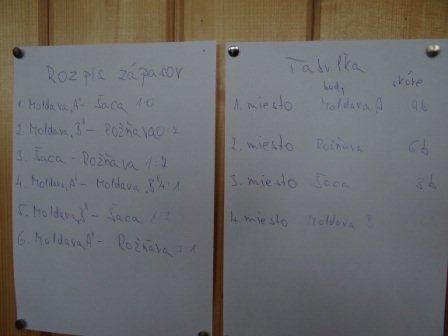 Rozpis zápasov
1. Moldava „A“ - Šaca 1:0
2. Moldava „B“ - Rožňava 0:2
3. Šaca - Rožňava 1:2
4. Moldava „A“ - Moldava „B“ 4:1
5. Moldava „B“ - Šaca
6. Moldava „A“ - Rožňava
Tabuľka
body skóre
1. miesto Moldava A 9b
2. miesto Rožňava 6b
3. miesto Šaca 3b
4. miesto Moldava B